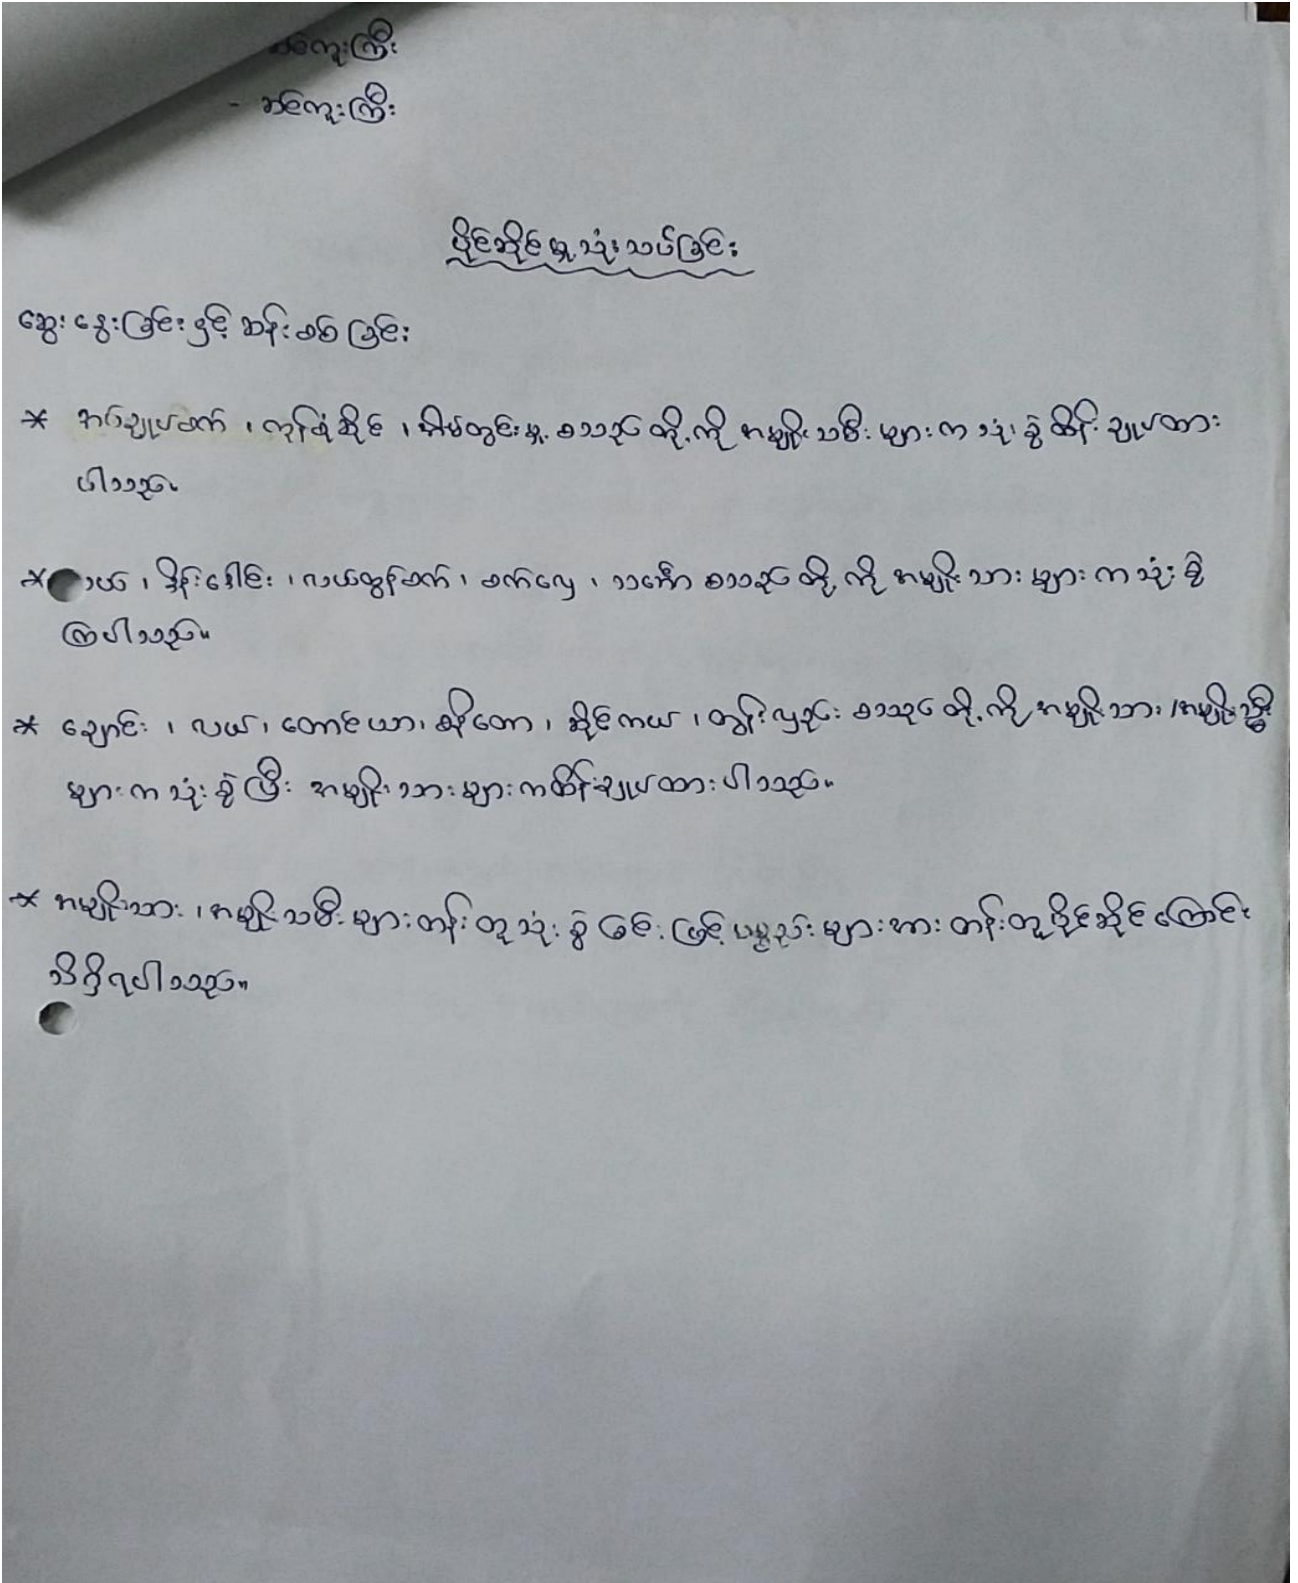 ဆင်ကူးကြီး
- ဆင်ကူးကြီး
ပိုင်ဆိုင်မှု သုံးသပ်ခြင်း
ဆွေးနွေးခြင်းနှင့် ဆန်းစစ်ခြင်း
* အပ်ချုပ်စက် ၊ ကုန်စုံဆိုင် ၊ အိမ်တွင်းမှု စသည်တို့ကို အမျိုးသမီးများက သုံးစွဲထိန်းချုပ်ထား
ပါသည်။
* ၊ ဒိန်းဒေါင်း ၊ လယ်ထွန်စက် ၊ စက်လှေ ၊ သင်္ဘော စသည်တို့ကို အမျိုးသားများက သုံးစွဲ
ကြပါသည်။
* ချောင်း ၊ လယ် ၊ တောင်ယာ ၊ စိုတော ၊ ဆိုင်ကယ် ၊ တွန်းလှည်း စသည်တို့ကို အမျိုးသား /အမျိုးသ္မီး
များက သုံးစွဲပြီး အမျိုးသားများကထိန်းချုပ်ထားပါသည်။
* အမျိုးသား ၊ အမျိုးသမီးများ တန်းတူသုံးစွဲခြင်းဖြင့် ပစ္စည်းများအား တန်းတူပိုင်ဆိုင်ကြောင်း
သိရှိရပါသည်။